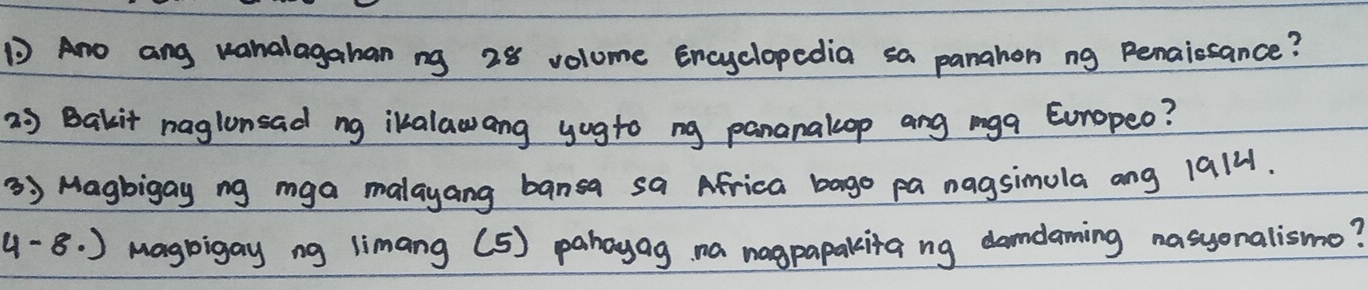 1.) Ano ang kahalagahan ng 28 volume Encyclopedia sa panahon ng Renaissance?
2.) Bakit naglunsad ng ikalawang yugto ng pananakop ang mga Europeo?
3.) Magbigay ng mga malayang bansa sa Africa bago pa nagsimula ang 1914.
4-8.) Magbigay ng limang (5) pahayag na nagpapakita ng damdaming nasyonalismo?